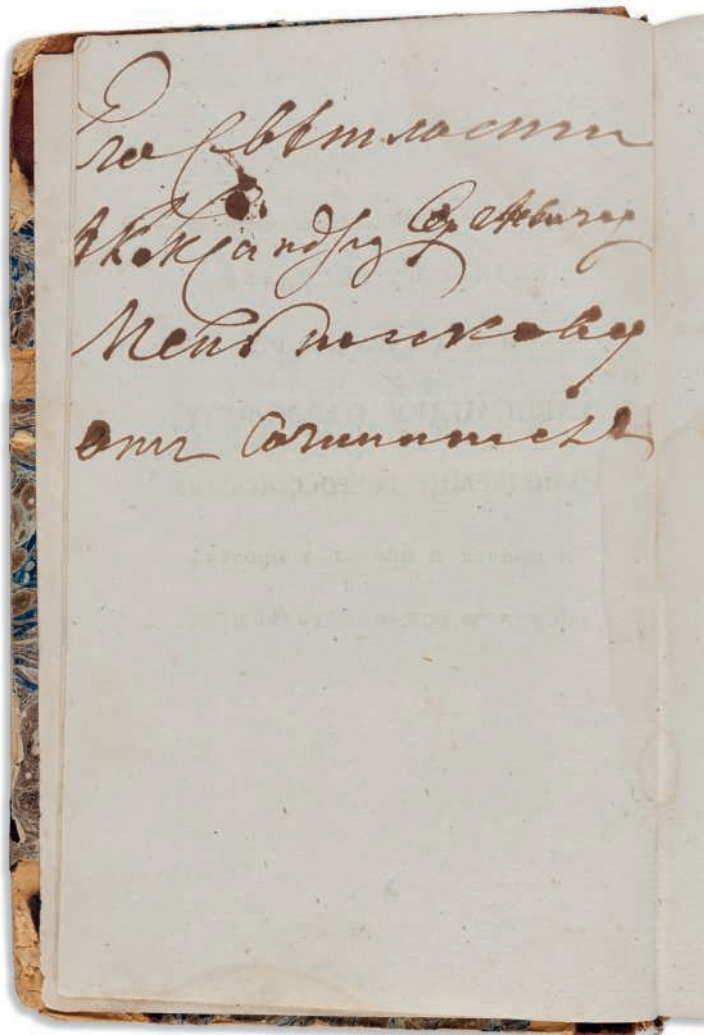 Его Свѣтлости
Александру Сергѣевичу
Меньшикову
отъ Сочинителя